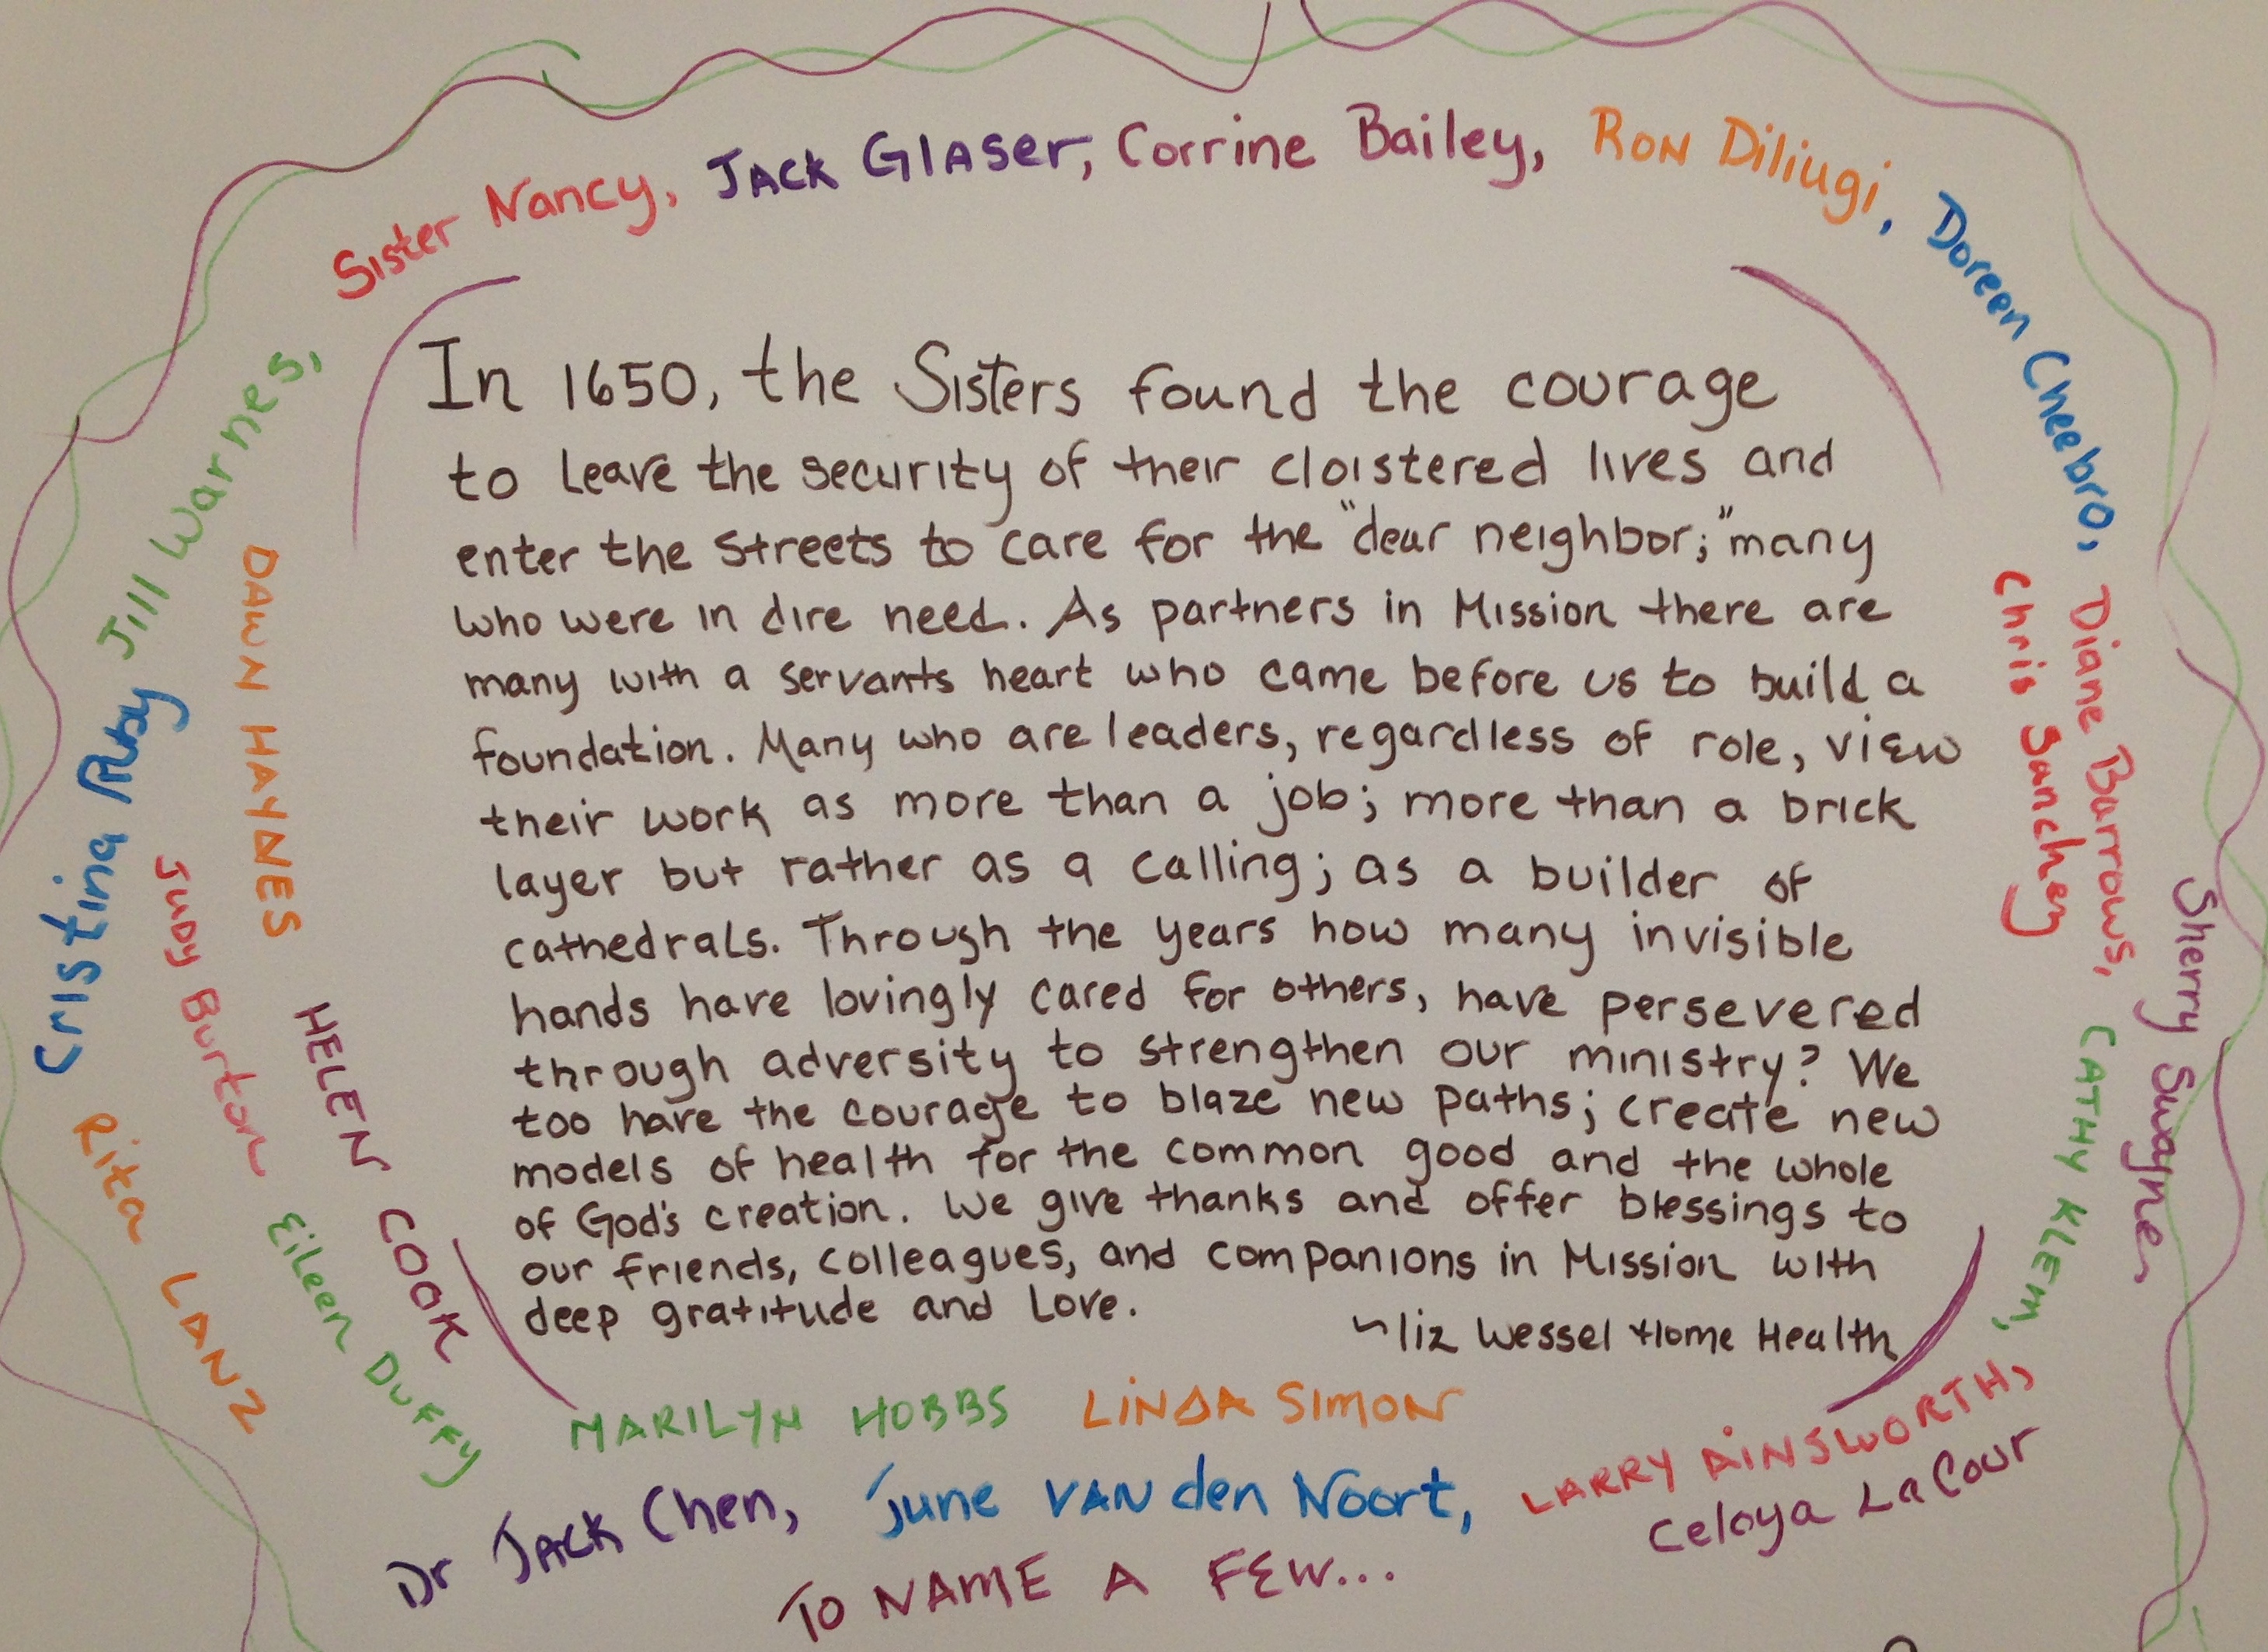 Sister Nancy, Jack Glaser, Corrine Bailey, Ron Diliugi, Doreen Cheebro, Diane Barrows, Cathy Klem, Larry Ainsworth,
Chris Sanchez
Sherry Swayne
Celoya LaCour
Jill Warnes,
Cristina Ruby
DAWN HAYNES
Judy Burton
HELEN COOK
Rita LANZ
Eileen Duffy
In 1650, the Sisters found the courage
to leave the security of their cloistered lives and
enter the streets to care for the "dear neighbor;" many
who were in dire need. As partners in Mission there are
many with a servants heart who came before us to build a
foundation. Many who are leaders, regardless of role, view
their work as more than a job; more than a brick
layer but rather as a calling; as a builder of
cathedrals. Through the years how many invisible
hands have lovingly cared for others, have persevered
through adversity to strengthen our ministry? We
too have the courage to blaze new paths; create new
models of health for the common good and the whole
of God's creation. We give thanks and offer blessings to
our friends, colleagues, and companions in Mission with
deep gratitude and love.
~liz Wessel Home Health
MARILYN HOBBS LINDA SIMON
Dr Jack Chen, June VAN den Noort,
TO NAME A FEW...